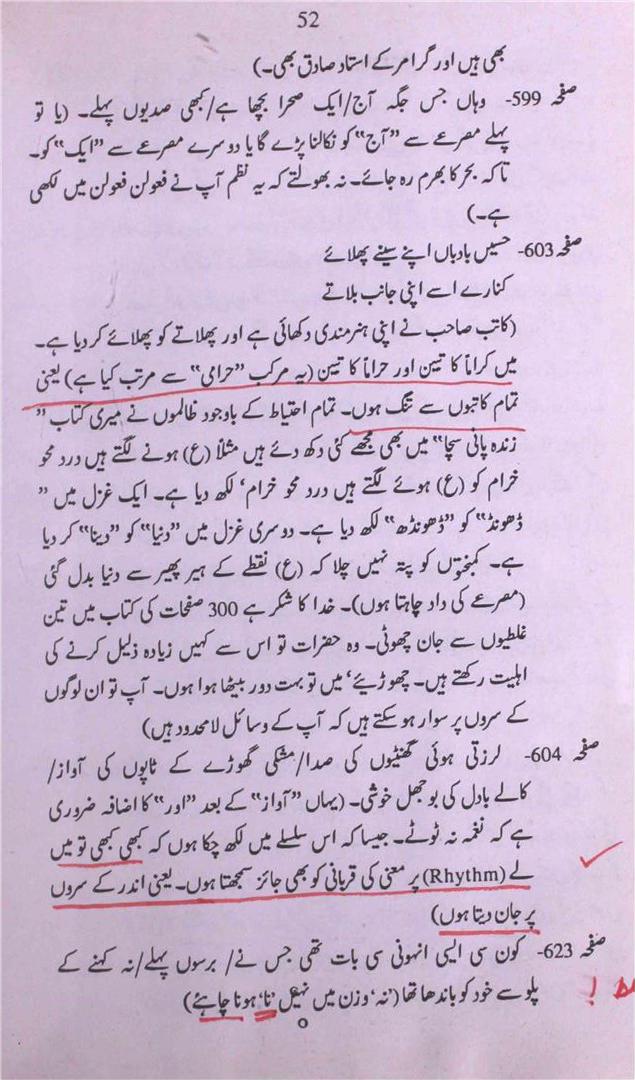 52
بھی ہیں اور گرامر کے استاد صادق بھی۔)
صفحہ 599- وہاں جس جگہ آج/ایک صحرا بچھا ہے/کبھی صدیوں پہلے۔ (یا تو
پہلے مصرعے سے ”آج“ کو نکالنا پڑے گا یا دوسرے مصرعے سے ”ایک“ کو۔
تاکہ بحر کا بھرم رہ جائے۔ نہ بھولئے کہ یہ نظم آپ نے فعولن فعولن میں لکھی
ہے۔)
صفحہ 603- حسیں بادباں اپنے سینے پھلائے
کنارے اسے اپنی جانب بلاتے
(کاتب صاحب نے اپنی ہنرمندی دکھائی ہے اور پھلاتے کو پھلائے کر دیا ہے۔
میں کراماً کاتبین اور حراماً کاتبین (یہ مرکب ”حرامی“ سے مرتب کیا ہے) یعنی
تمام کاتبوں سے تنگ ہوں۔ تمام احتیاط کے باوجود ظالموں نے میری کتاب ”
زندہ پانی سچا“ میں بھی مجھے کئی دکھ دئے ہیں مثلاً (ع) ہونے لگتے ہیں درد محو
خرام کو (ع) ہوئے لگتے ہیں درد محو خرام‘ لکھ دیا ہے۔ ایک غزل میں ”
ڈھونڈ“ کو ”ڈھونڈھ“ لکھ دیا ہے۔ دوسری غزل میں ”دنیا“ کو ”دینا“ کر دیا
ہے۔ کمبختوں کو پتہ نہیں چلا کہ (ع) نقطے کے ہیر پھیر سے دنیا بدل گئی
(مصرعے کی داد چاہتا ہوں)۔ خدا کا شکر ہے 300 صفحات کی کتاب میں تین
غلطیوں سے جان چھوٹی۔ وہ حضرات تو اس سے کہیں زیادہ ذلیل کرنے کی
اہلیت رکھتے ہیں۔ چھوڑیئے‘ میں تو بہت دور بیٹھا ہوا ہوں۔ آپ تو ان لوگوں
کے سروں پر سوار ہو سکتے ہیں کہ آپ کے وسائل لامحدود ہیں)
صفحہ 604- لرزتی ہوئی گھنٹیوں کی صدا/مشکی گھوڑے کے ٹاپوں کی آواز/
کالے بادل کی بوجھل خوشی۔ (یہاں ”آواز“ کے بعد ”اور“ کا اضافہ ضروری
ہے کہ نغمہ نہ ٹوٹے۔ جیسا کہ اس سلسلے میں لکھ چکا ہوں کہ کبھی کبھی تو میں
لے (Rhythm) پر معنی کی قربانی کو بھی جائز سمجھتا ہوں۔ یعنی اندر کے سروں
پر جان دیتا ہوں)
صفحہ 623- کون سی ایسی انہونی سی بات تھی جس نے/ برسوں پہلے/نہ کہنے کے
پلو سے خود کو باندھا تھا (’نہ‘ وزن میں نہیں ’نا‘ ہونا چاہئے)
!